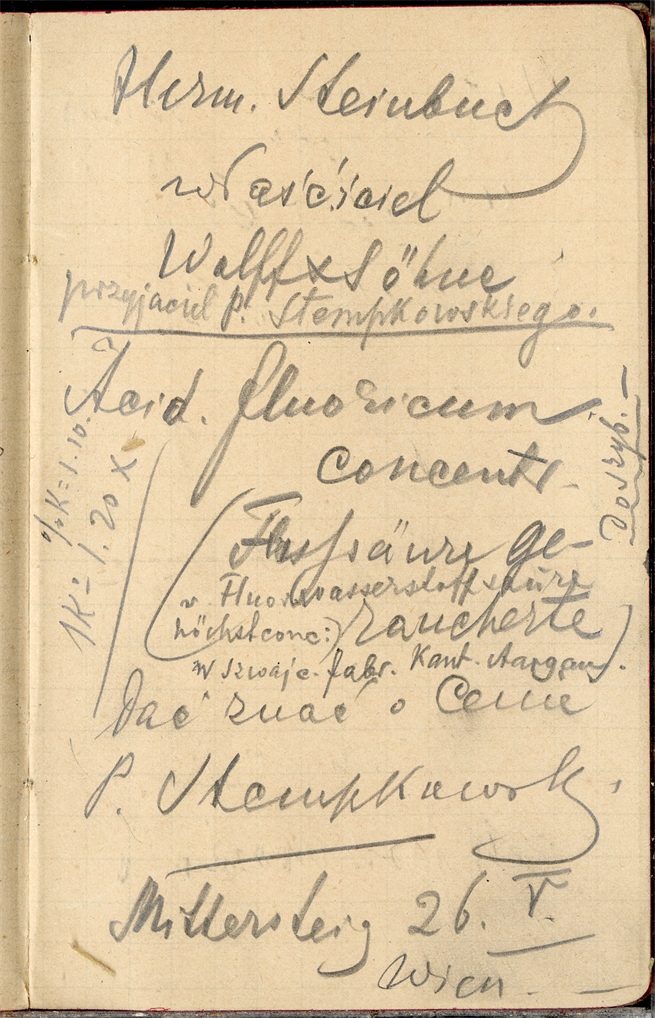 Herm. Steinbuch
właściciel
Wolff & Söhne
przyjaciel P. Stempkowskiego.
Acid. fluoricum
concentr.
(Flussäure ge-
v. Fluorwasserstoffsäure
höchstconc:) raucherte
w szwajc. fabr. Kant. Aargau).
Dać znać o Cenie
P. Stempkowski
Mittersteig 26. V.
Wien.
½ K = 1.10.
1K = 1.20 x